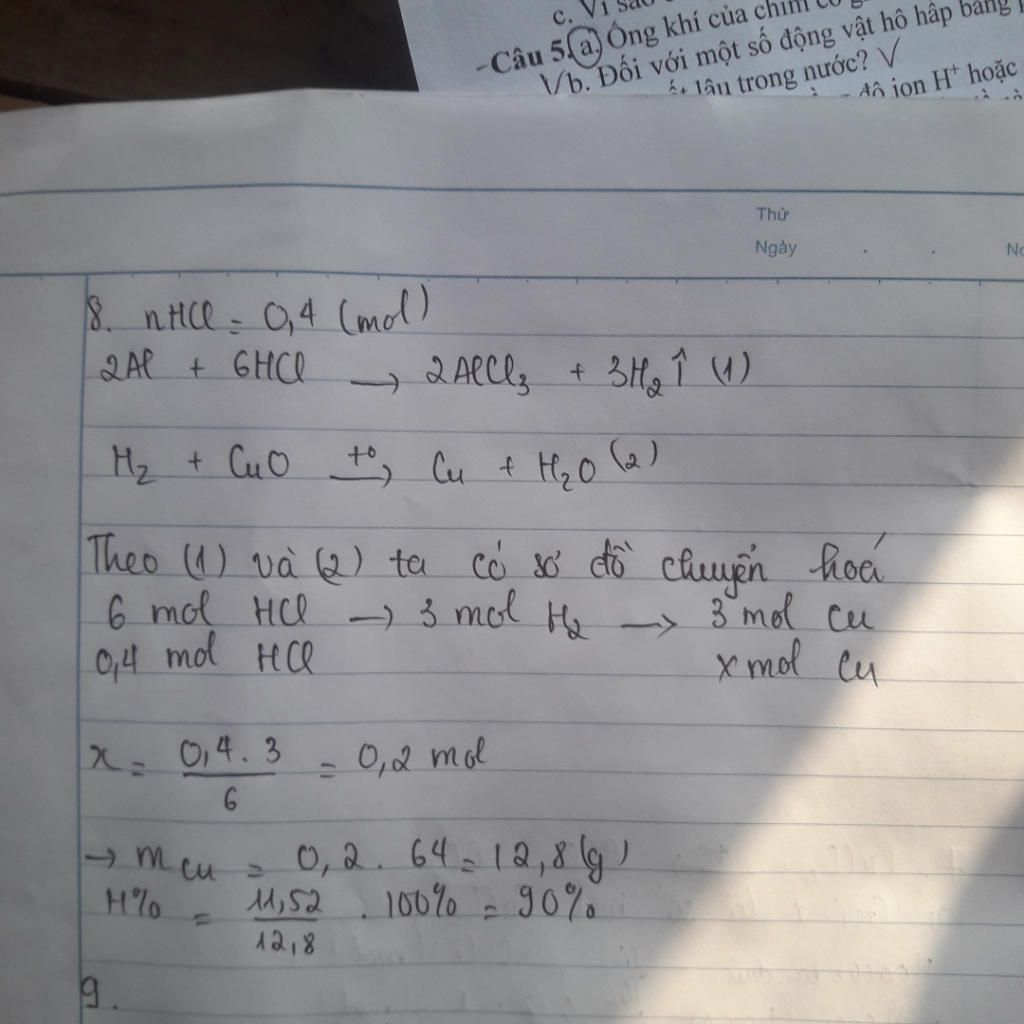 c. Vì sao
-Câu 5. a. Ống khí của chim có
Vb. Đối với một số động vật hô hấp bằng
lâu trong nước? V
độ ion H⁺ hoặc
Thứ
Ngày . .
8. nHCl = 0,4 (mol)
2Al + 6HCl → 2AlCl₃ + 3H₂↑ (1)
H₂ + CuO →(t°) Cu + H₂O (2)
Theo (1) và (2) ta có sơ đồ chuyển hoá
6 mol HCl → 3 mol H₂ → 3 mol Cu
0,4 mol HCl x mol Cu
x = 0,4 . 3 / 6 = 0,2 mol
→ m Cu = 0,2 . 64 = 12,8 (g)
H% = 11,52 / 12,8 . 100% = 90%
9.